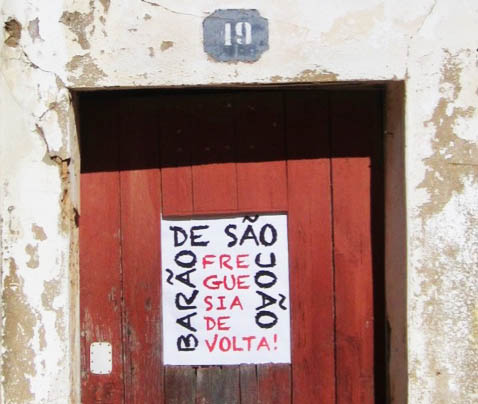 19
BARÃO DE SÃO JOÃO
FRE
GUE
SIA
DE
VOLTA!